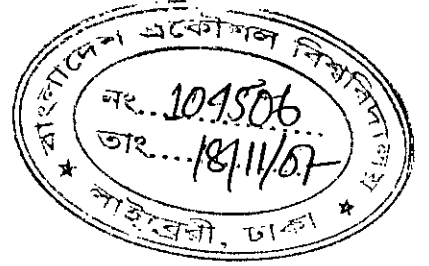 বাংলাদেশ প্রকৌশল বিশ্ববিদ্যালয়
নং...104506
তাং....18/11/07
★ লাইব্রেরী, ঢাকা ★